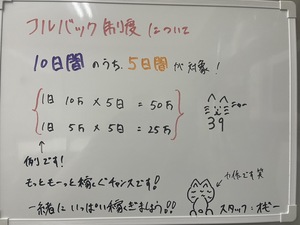 フルバック制度について
10日間のうち、5日間が対象!
1日 10万×5日=50万
1日 5万×5日=25万
39
↑
例です!
もっともーっと稼ぐチャンスです!
一緒にいっぱい稼ぎましょう!!
スタッフ:オギー